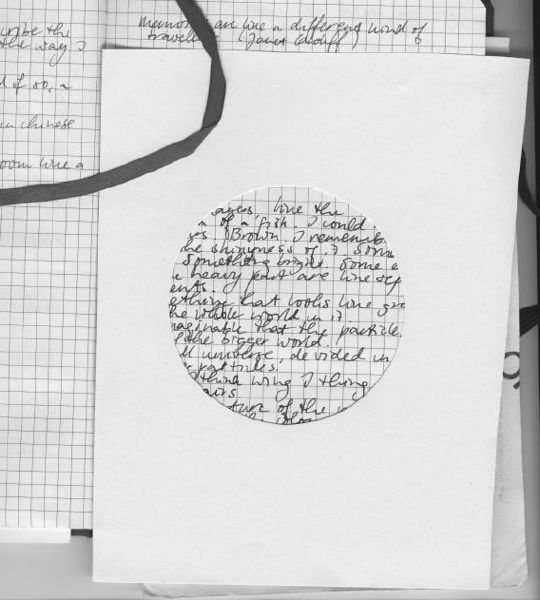 the way I
d if so, ~
in chinese
oom like a
memory are like a different kind of
traveling (Janet Cardiff)
aves, like the
of a fish I could
Brown I rememb
he shinyness of it Som
Something bright. Some e
e heavy part are line sep
ents.
ething that looks like gr
he whole world in it.
maginable that the particle
f the bigger world.
ll universe, devided in
particles.
think wing I thing
airs
ture of the